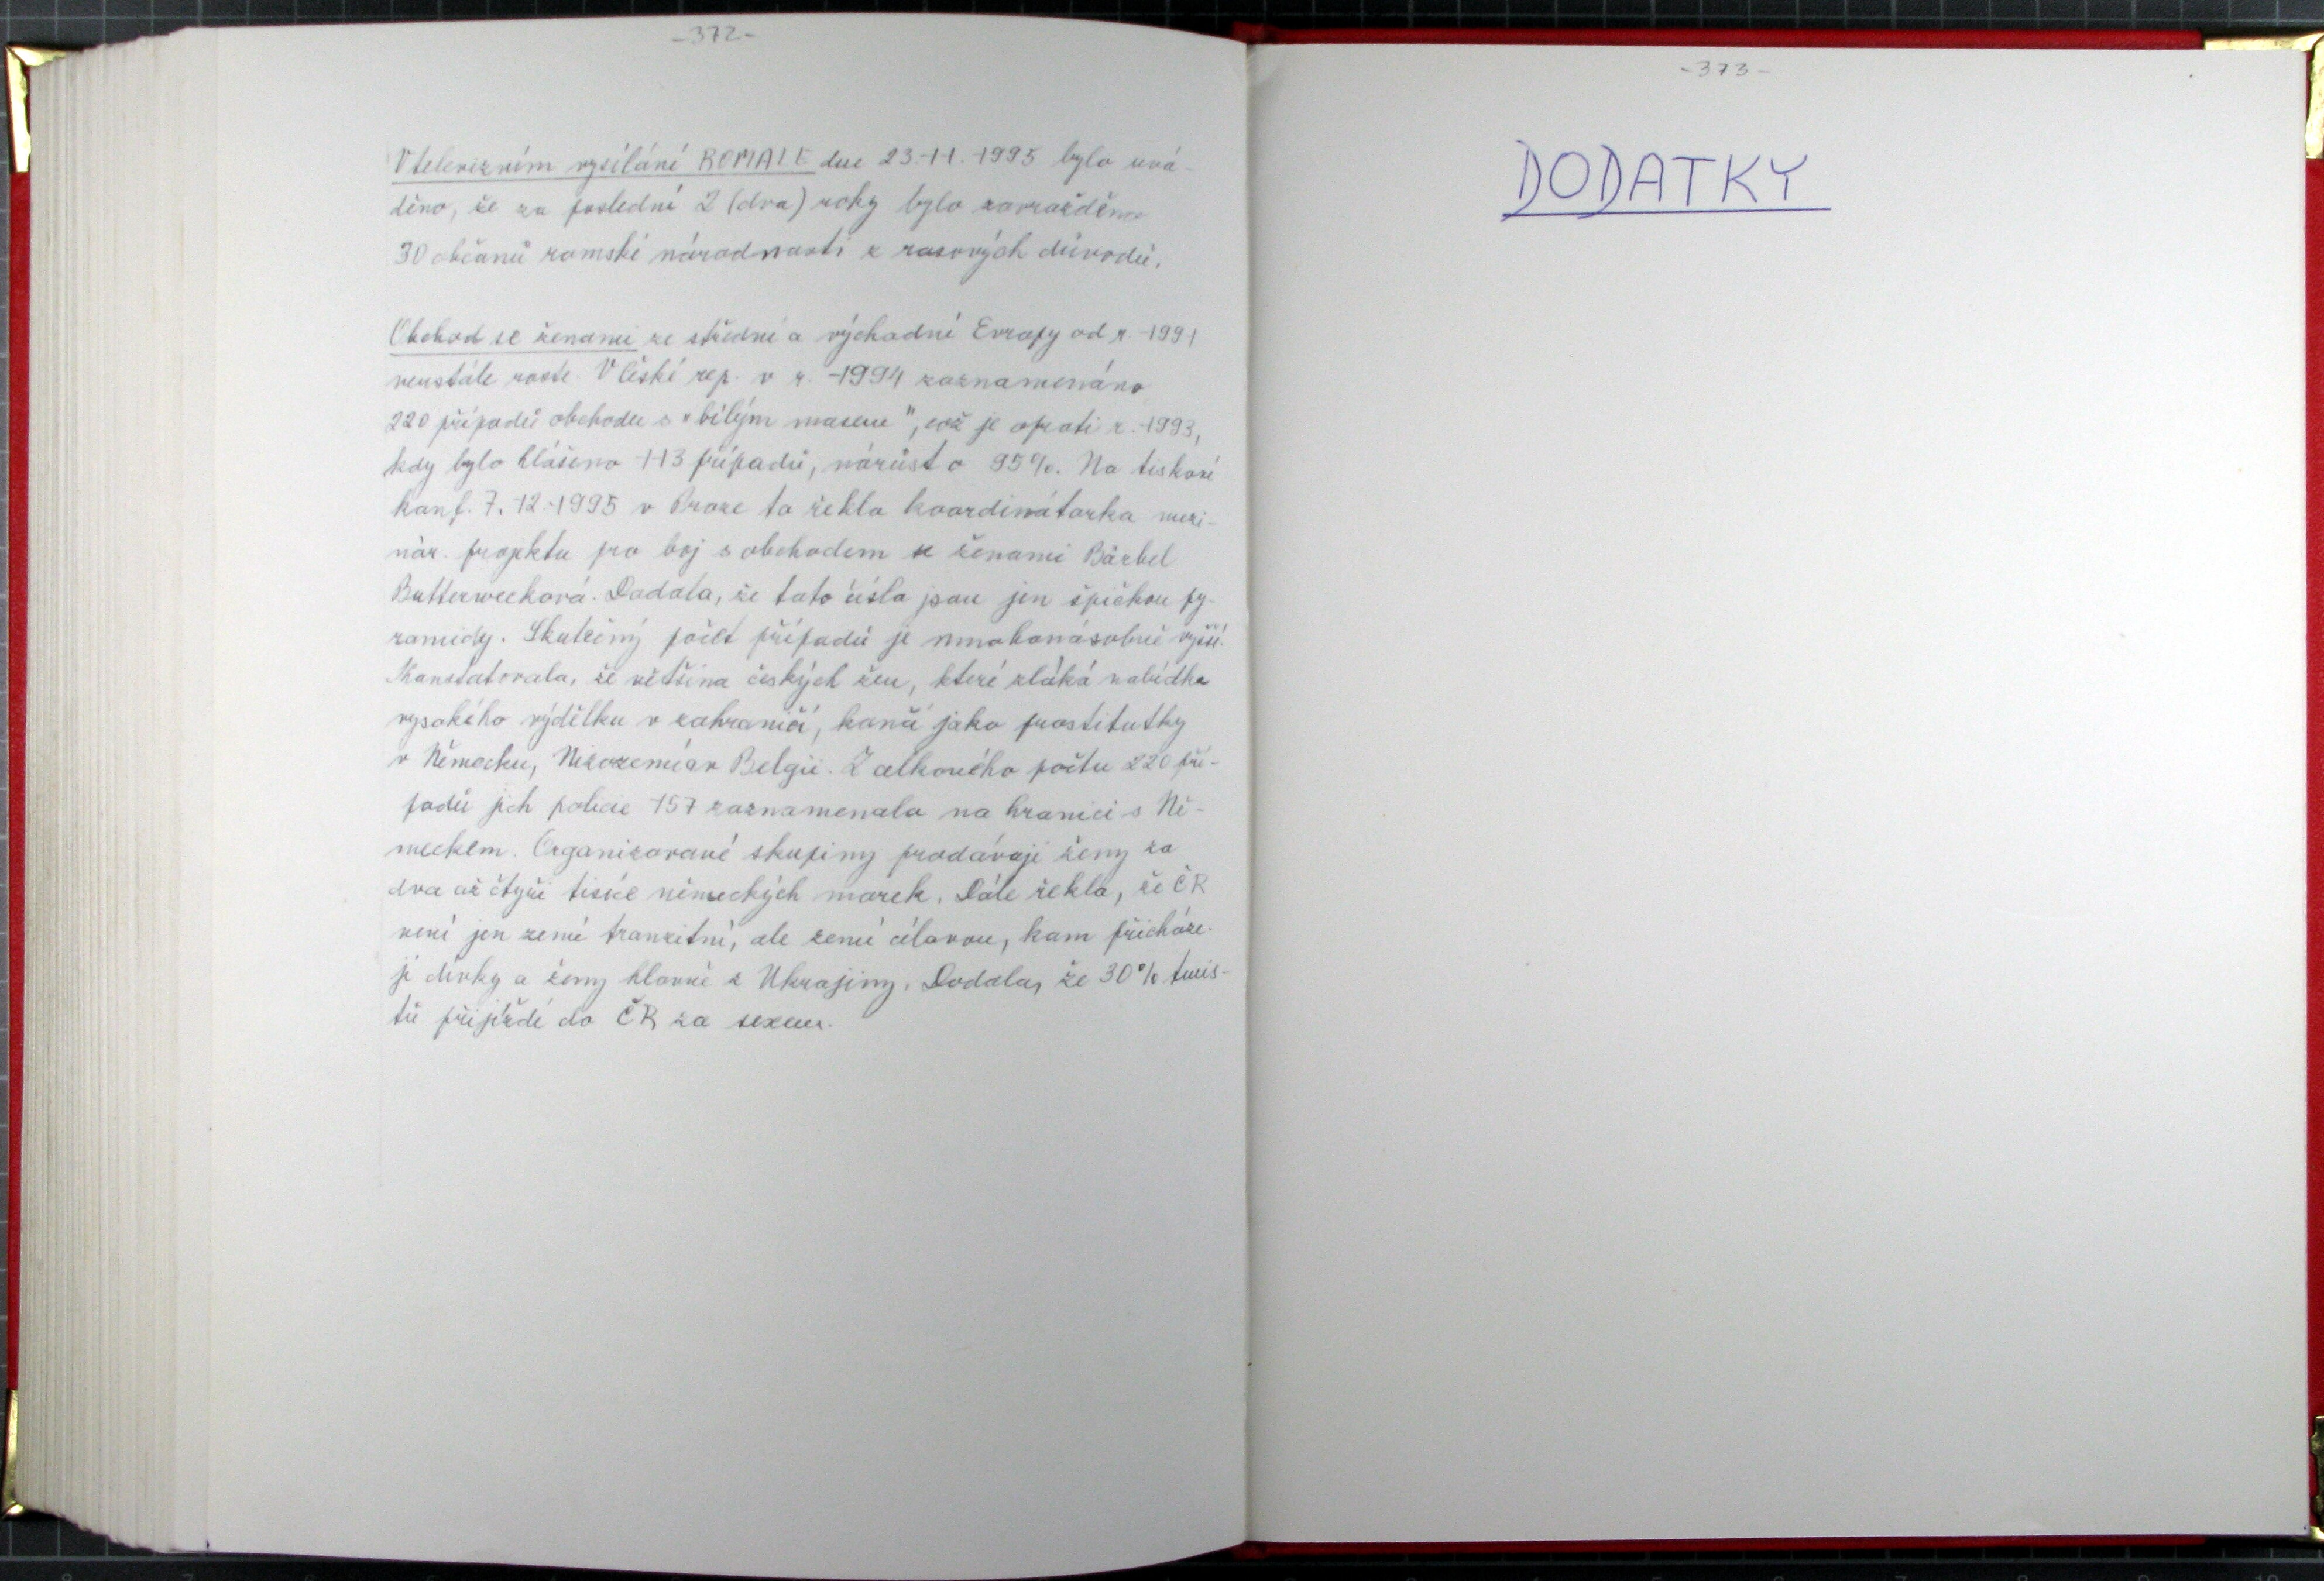 -372-
V televizním vysílání ROMALE dne 23.11.1995 bylo uvá-
děno, že za poslední 2 (dva) roky bylo zavražděno
30 občanů romské národnosti z rasových důvodů.
Obchod se ženami ze střední a východní Evropy od r. 1991
neustále roste. V České rep. v r. 1994 zaznamenáno
220 případů obchodu s "bílým masem", což je oproti r. 1993,
kdy bylo hlášeno 113 případů, nárůst o 95%. Na tiskové
konf. 7.12.1995 v Praze to řekla koordinátorka mezi-
nár. projektu pro boj s obchodem se ženami Bärbel
Butterwecková. Dodala, že tato čísla jsou jen špičkou py-
ramidy. Skutečný počet případů je mnohonásobně vyšší.
Konstatovala, že většina českých žen, které zláká nabídka
vysokého výdělku v zahraničí, končí jako prostitutky
v Německu, Nizozemí a v Belgii. Z celkového počtu 220 pří-
padů jich policie 157 zaznamenala na hranici s Ně-
meckem. Organizované skupiny prodávají ženy za
dva až čtyři tisíce německých marek. Dále řekla, že ČR
není jen zemí tranzitní, ale zemí cílovou, kam přicháze-
jí dívky a ženy hlavně z Ukrajiny. Dodala, že 30% turis-
tů přijíždí do ČR za sexem.
-373-
DODATKY